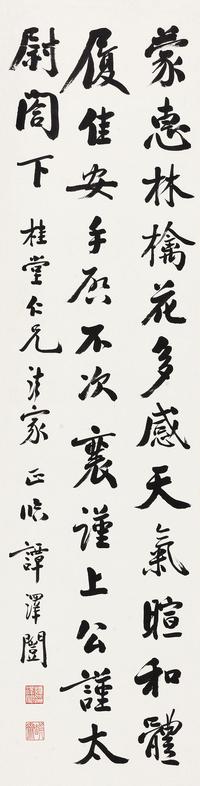 蒙惠林檎花多感天氣暄和體
履佳安手啓不次襄謹上公謹太
尉閤下
桂堂仁兄法家正臨 譚澤闓